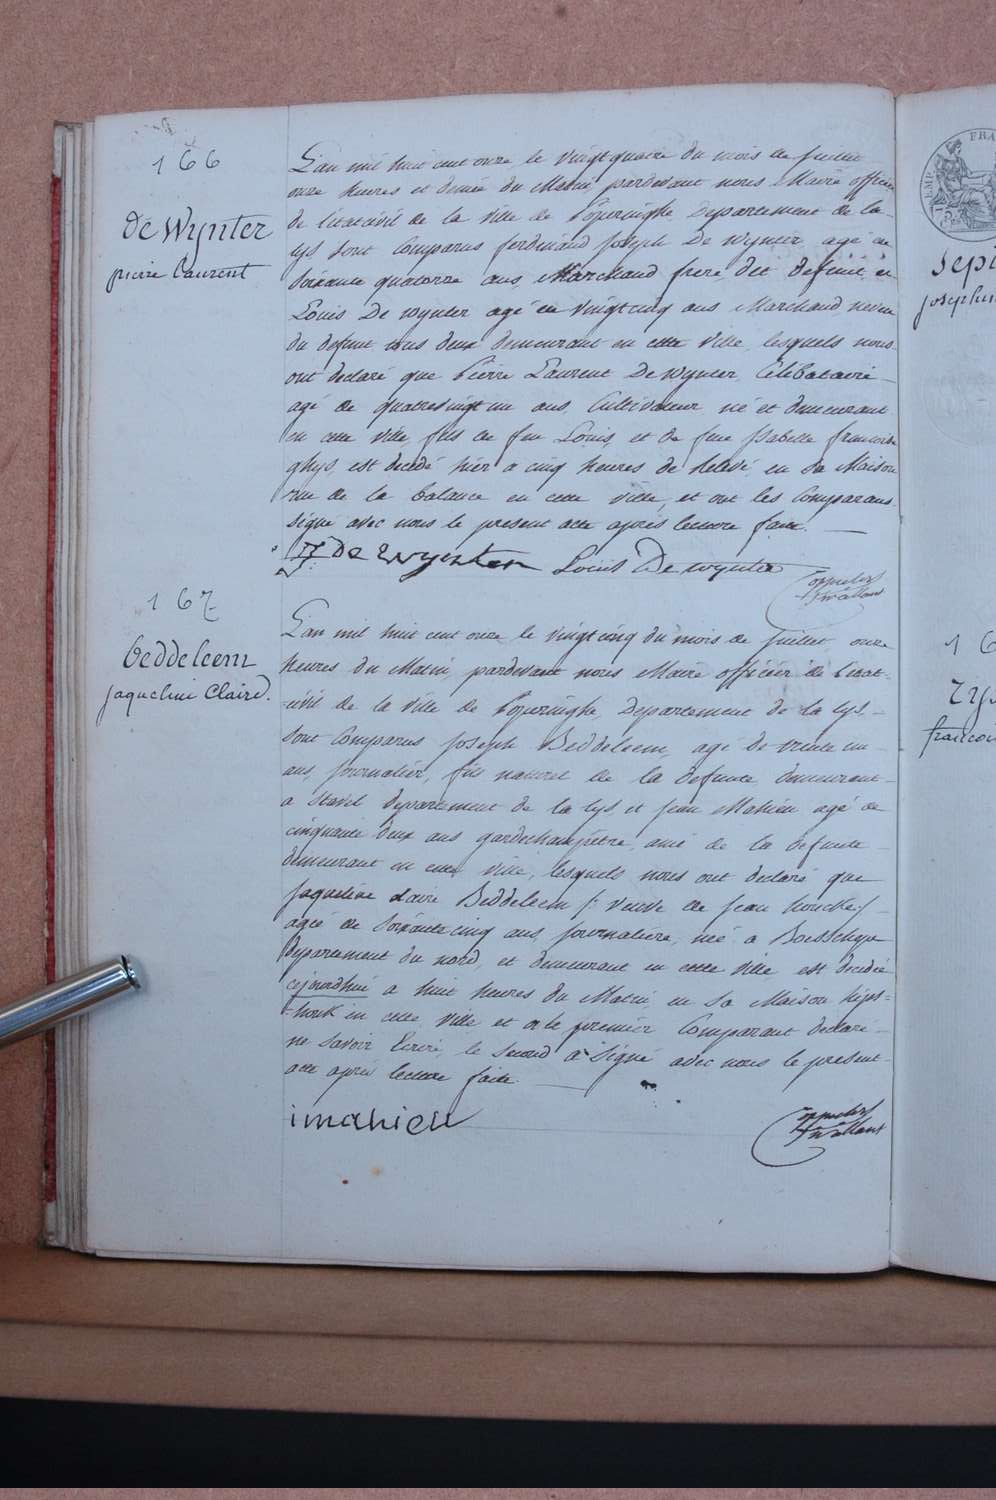 166
de Wynter
pierre laurent
L'an mil huit cent onze le vingtquatre du mois de juillet
onze heures et demie du Matin pardevant nous Maire officier
de l'etat civil de la ville de Poperinghe Departement de la
lys sont Comparus ferdinand joseph De Wynter agé de
soixante quatorze ans, Marchand frere dit defunt et
Louis De wynter agé de vingtcinq ans Marchand neveu
du defunt tous deux demeurant en cette ville, lesquels nous
ont declaré que Pierre Laurent De Wynter, Célibataire
agé de quatrevingt un ans, Cultivateur né et demeurant
en cette ville, fils de feu Louis, et de feue Isabelle francoise
ghys, est decedé hier a cinq heures de relevé en sa Maison
rue de la balance en cette ville, et ont les Comparans
signé avec nous le present acte après lecture faite.
J: De Wynter Louis De wynter
167
beddeleem
jaqueline Claire.
L'an mil huit cent onze le vingtcinq du mois de juillet onze
heures du Matin, pardevant nous Maire officier de l'etat
civil de la ville de Poperinghe, Departement de la lys,
sont Comparus joseph Beddeleem, agé de trente un
ans, journalier, fils naturel de la defunte, demeurant
a Stavel departement de la lys, et jean Mahieu agé de
cinquante deux ans gardechampêtre, ami de la defunte
demeurant en cette ville, lesquels nous ont declaré que
jaqueline claire Beddeleem /: veuve de jean houcke :/
agée de soixante cinq ans, journaliere, née a Boesschepe
departement du nord, et demeurant en cette ville est decedée
cejourdhui a huit heures du Matin, en sa Maison
houk en cette ville et a le premier Comparant declaré
ne savoir Ecrire, le second a signé avec nous le present
acte après lecture faite.
i mahieu
FRA
EMP
sept
josephin
16
francoi